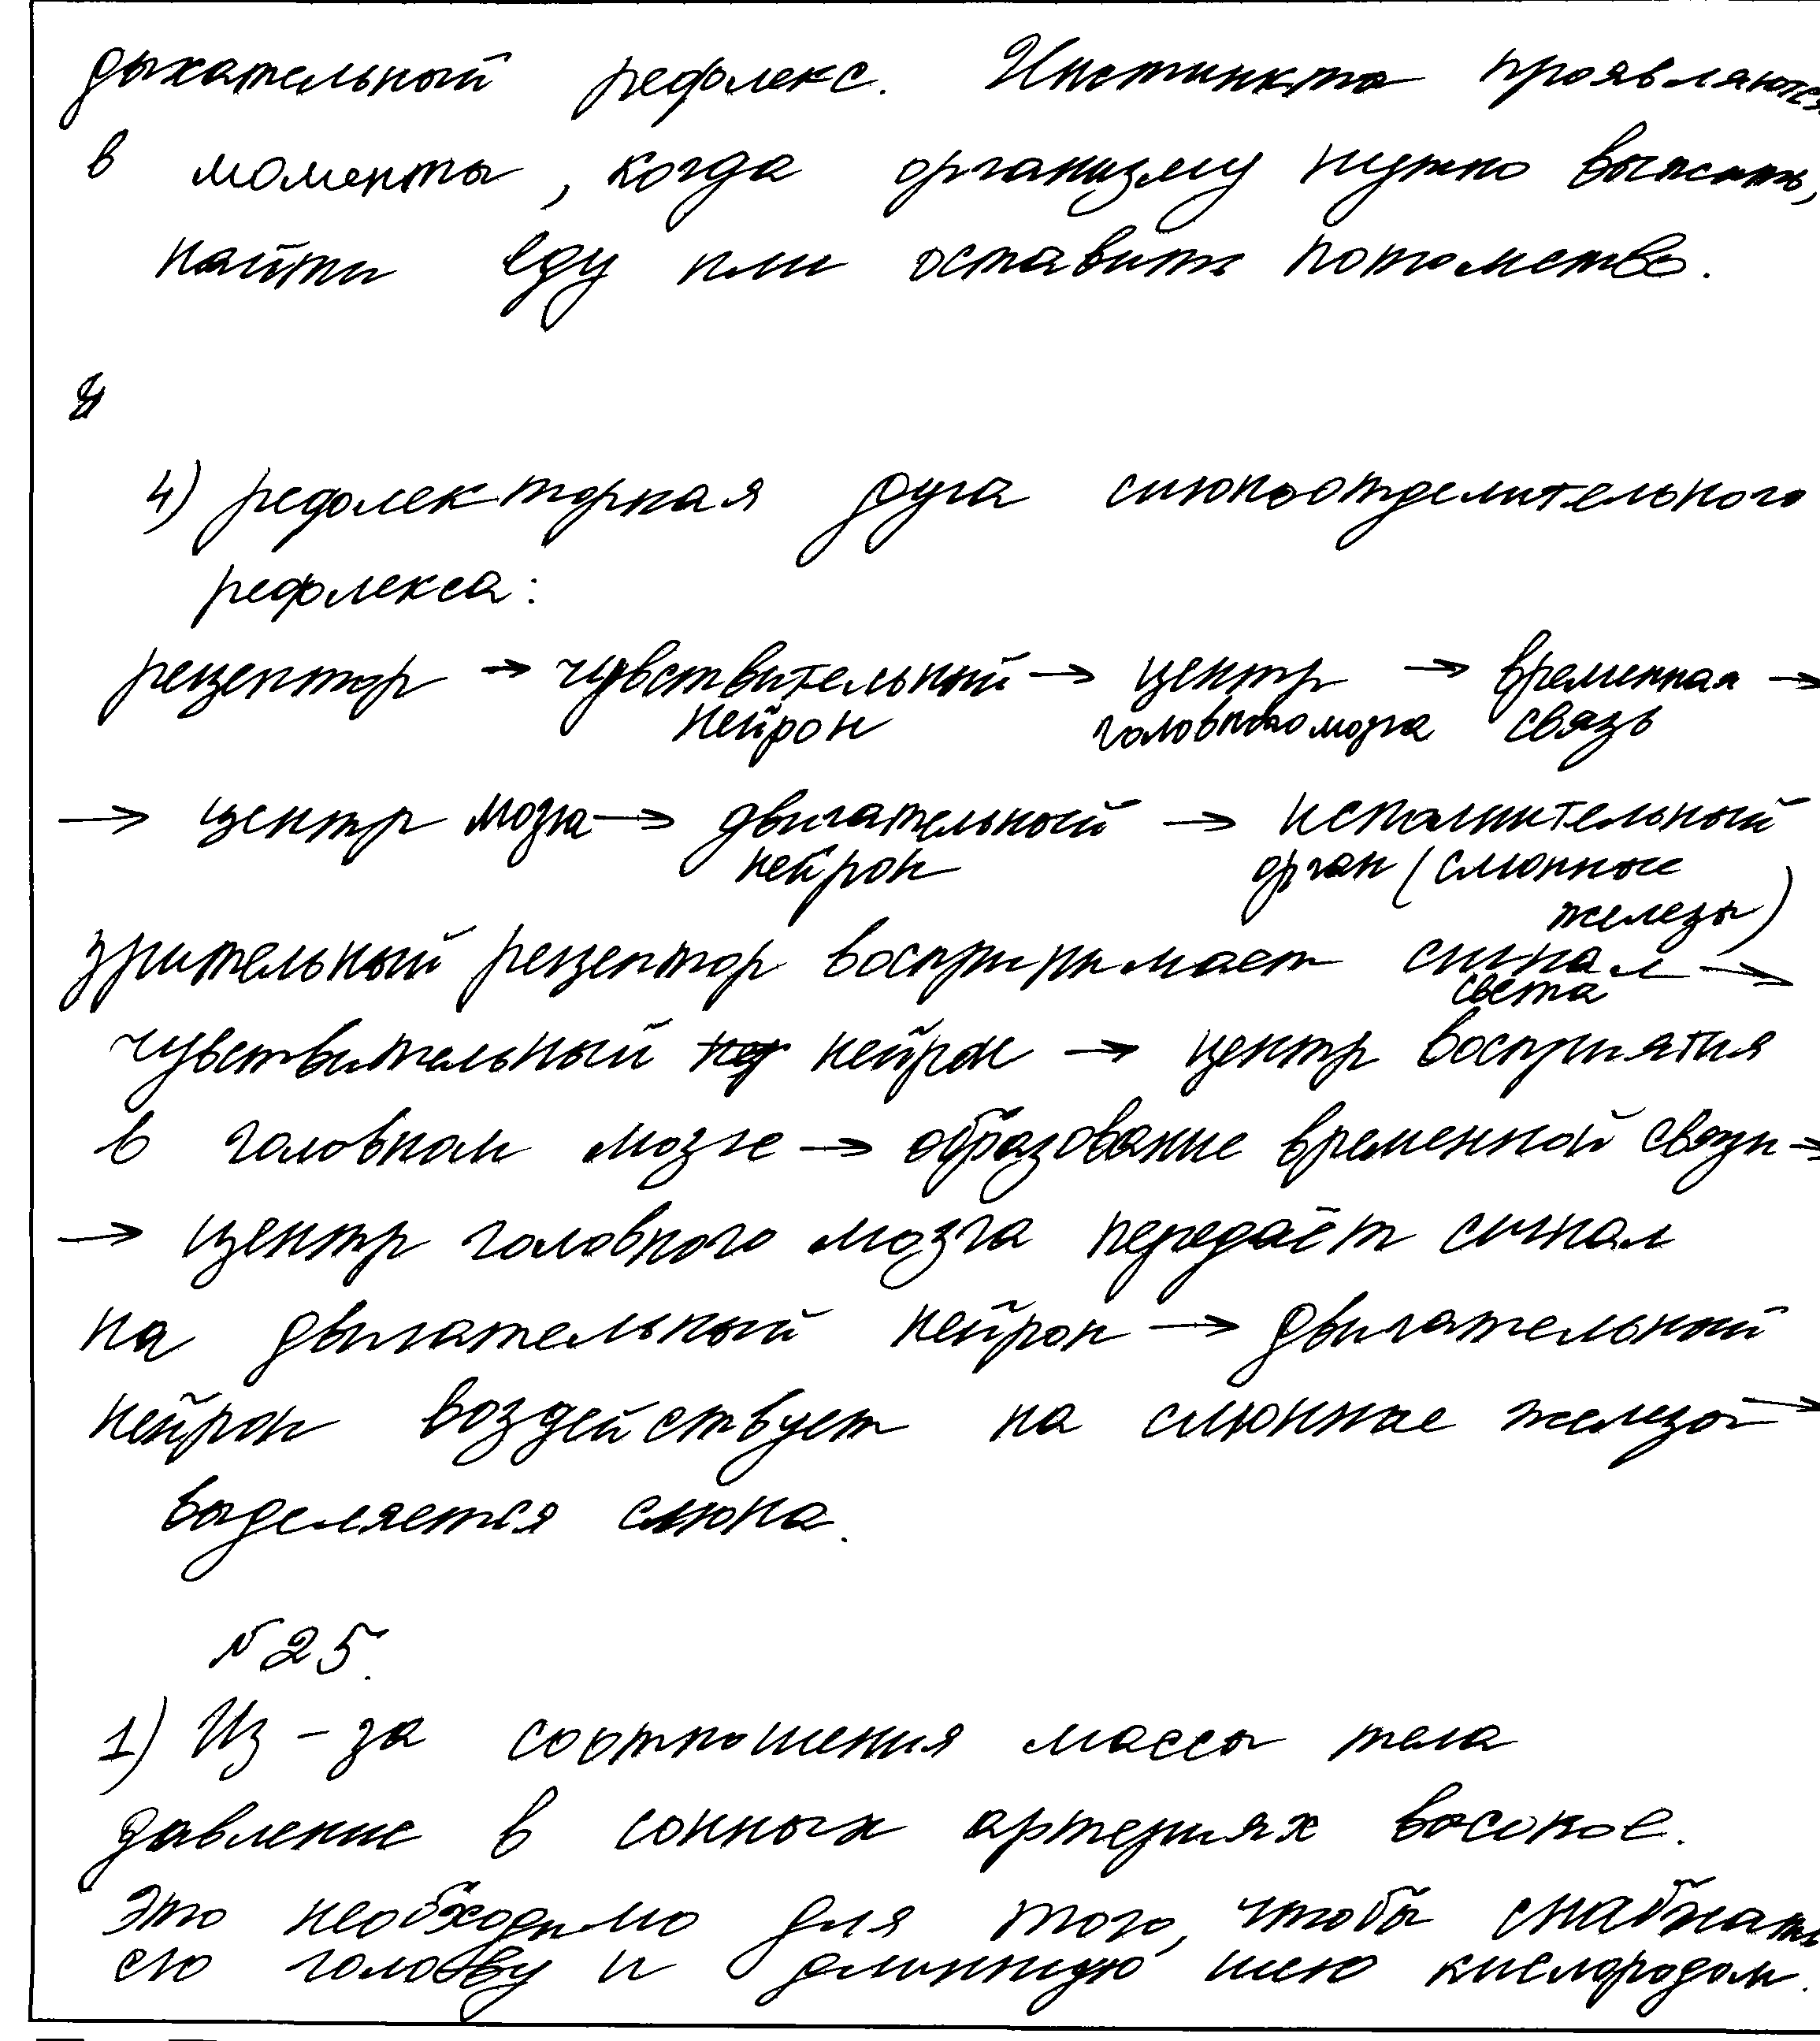 дыхательный рефлекс. Инстинкты проявляются
в моменты, когда организму нужно выжить,
найти еду или оставить потомство.
4) рефлекторная дуга слюноотделительного
рефлекса:
рецептор → чувствительный → центр → временная →
нейрон головного мозга связь
→ центр мозга → двигательный → исполнительный
нейрон орган (слюнные
железы)
зрительный рецептор воспринимает сигнал →
света
чувствительный нейрон → центр восприятия
в головном мозге → образование временной связи →
→ центр головного мозга передаёт сигнал
на двигательный нейрон → двигательный
нейрон воздействует на слюнные железы →
выделяется слюна.
№25.
1) Из-за соотношения массы тела
давление в сонных артериях высокое.
Это необходимо для того, чтобы снабжать
его голову и длинную шею кислородом.